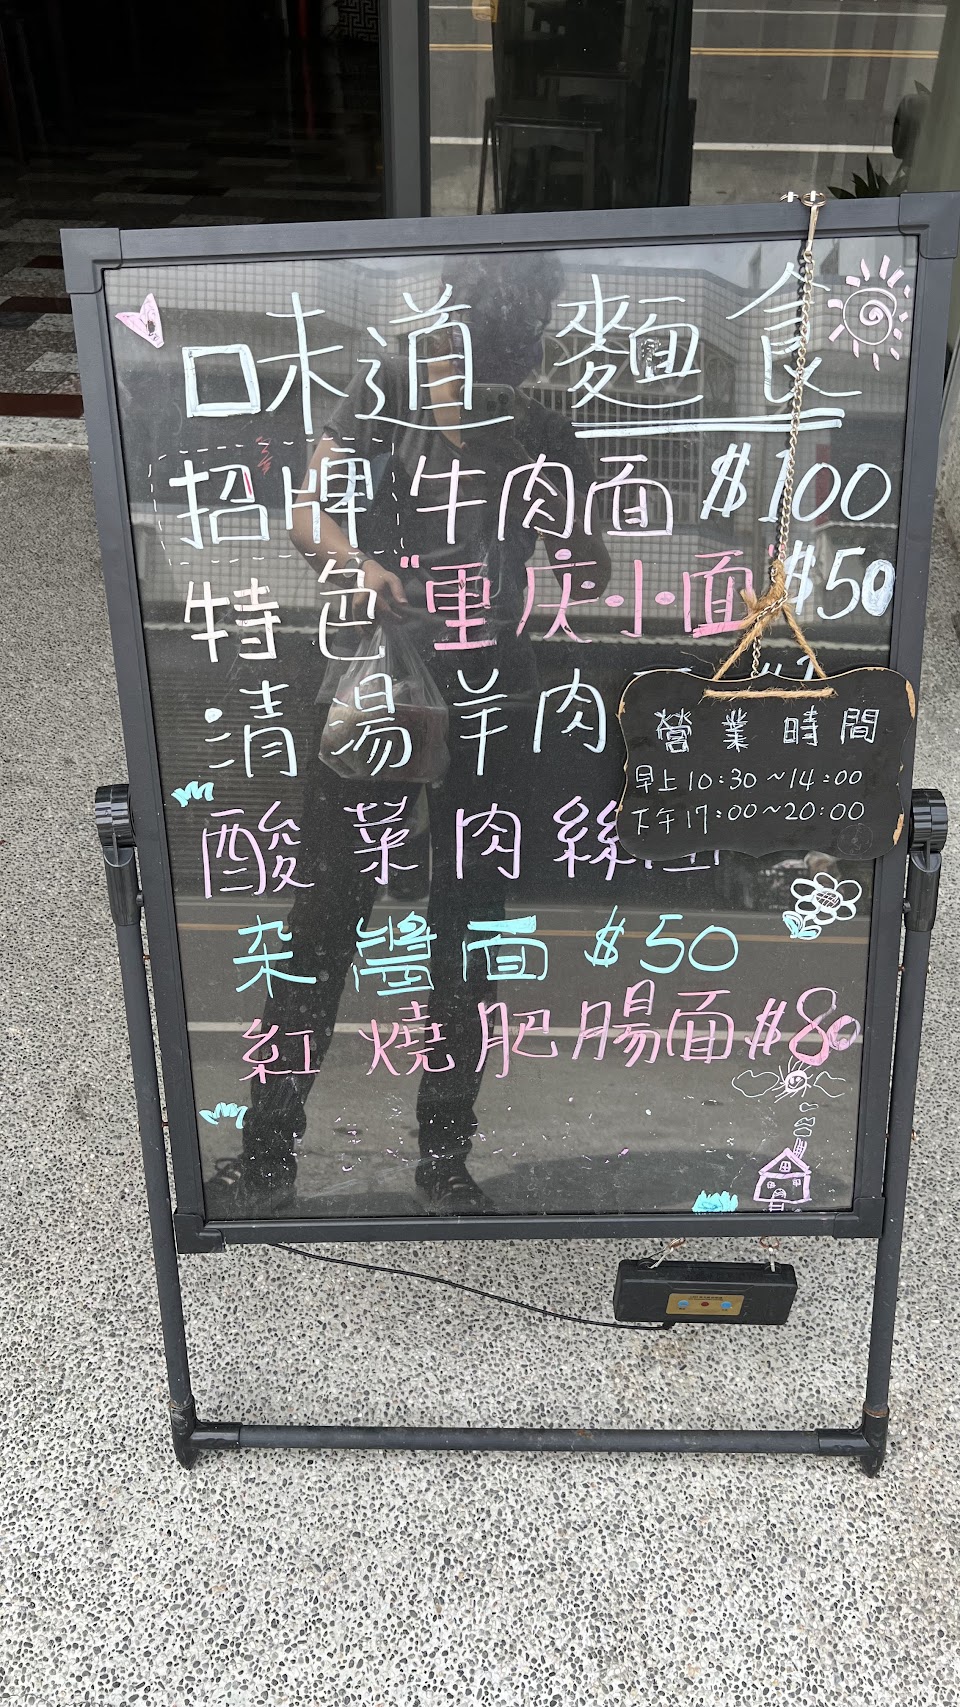 味道 麵食
招牌 牛肉面 $100
特色 "重庆小面" $50
清湯羊肉
酸菜肉絲
杂醬面 $50
紅燒肥腸面 $80
營業時間
早上10:30~14:00
下午17:00~20:00